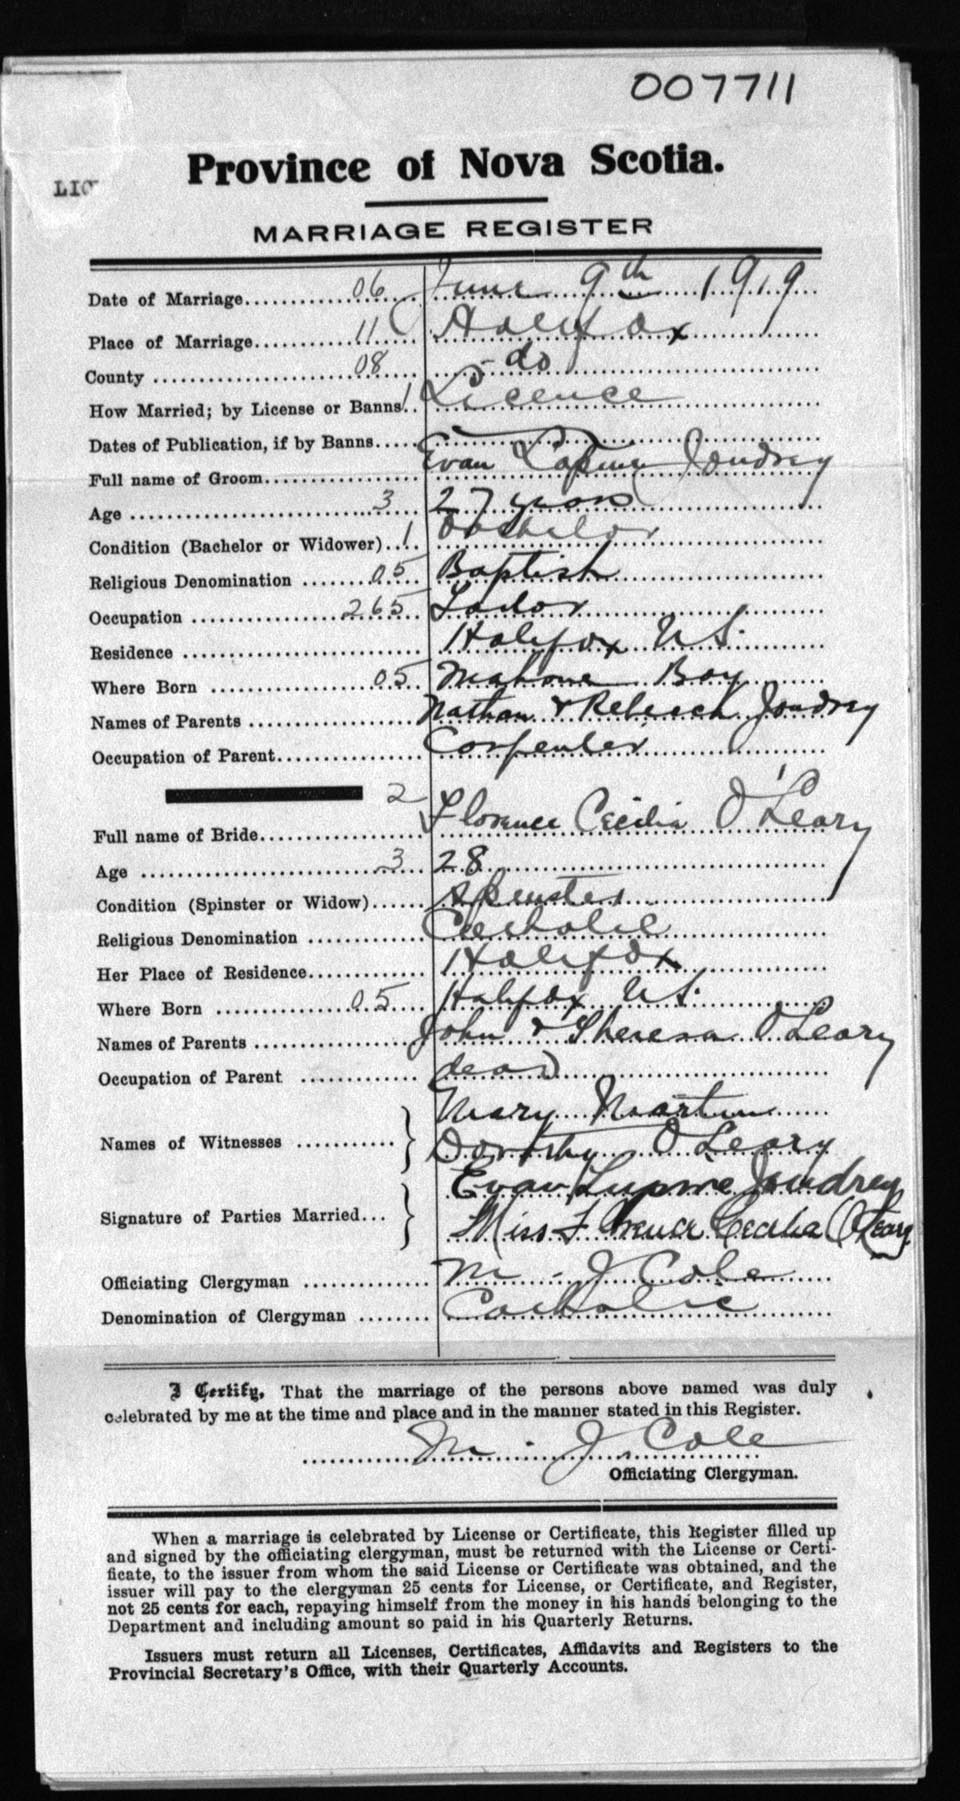 007711
Province of Nova Scotia.
LIC
MARRIAGE REGISTER
Date of Marriage 06 June 9th 1919
Place of Marriage 11 Halifax
County 08 - do
How Married; by License or Banns 1 Licence
Dates of Publication, if by Banns
Full name of Groom Evan Joudrey
Age 3 27 years
Condition (Bachelor or Widower) 1 Bachelor
Religious Denomination 05 Baptish
Occupation 265
Residence Halifax N S.
Where Born 05 Mahone Bay
Names of Parents Nathan & Rebecch Joudrey
Occupation of Parent Carpenter
2
Full name of Bride Florence Cecilia O'Leary
Age 3 28
Condition (Spinster or Widow) Spinster
Religious Denomination Catholic
Her Place of Residence Halifax
Where Born 05 Halifax N S.
Names of Parents John & Theresa O'Leary
Occupation of Parent dead
Mary Martin
Names of Witnesses Dorothy O'Leary
Evan Joudrey
Signature of Parties Married... Miss Florence Cecelia O'Leary
Officiating Clergyman M - J Cole
Denomination of Clergyman Catholic
I Certify, That the marriage of the persons above named was duly
celebrated by me at the time and place and in the manner stated in this Register.
M - J Cole
Officiating Clergyman.
When a marriage is celebrated by License or Certificate, this Register filled up
and signed by the officiating clergyman, must be returned with the License or Certi-
ficate, to the issuer from whom the said License or Certificate was obtained, and the
issuer will pay to the clergyman 25 cents for License, or Certificate, and Register,
not 25 cents for each, repaying himself from the money in his hands belonging to the
Department and including amount so paid in his Quarterly Returns.
Issuers must return all Licenses, Certificates, Affidavits and Registers to the
Provincial Secretary's Office, with their Quarterly Accounts.